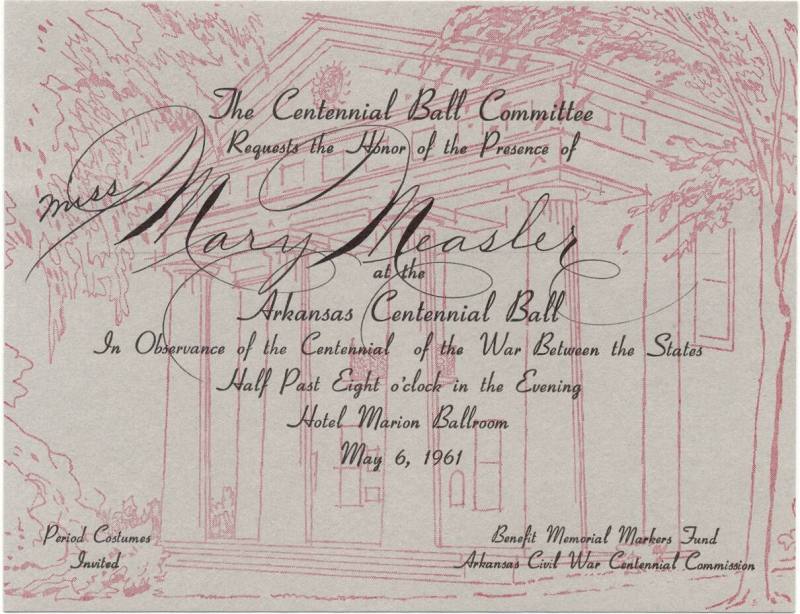 The Centennial Ball Committee
Requests the Honor of the Presence of
Miss Mary Measler
at the
Arkansas Centennial Ball
In Observance of the Centennial of the War Between the States
Half Past Eight o'clock in the Evening
Hotel Marion Ballroom
May 6, 1961
Period Costumes
Invited
Benefit Memorial Markers Fund
Arkansas Civil War Centennial Commission